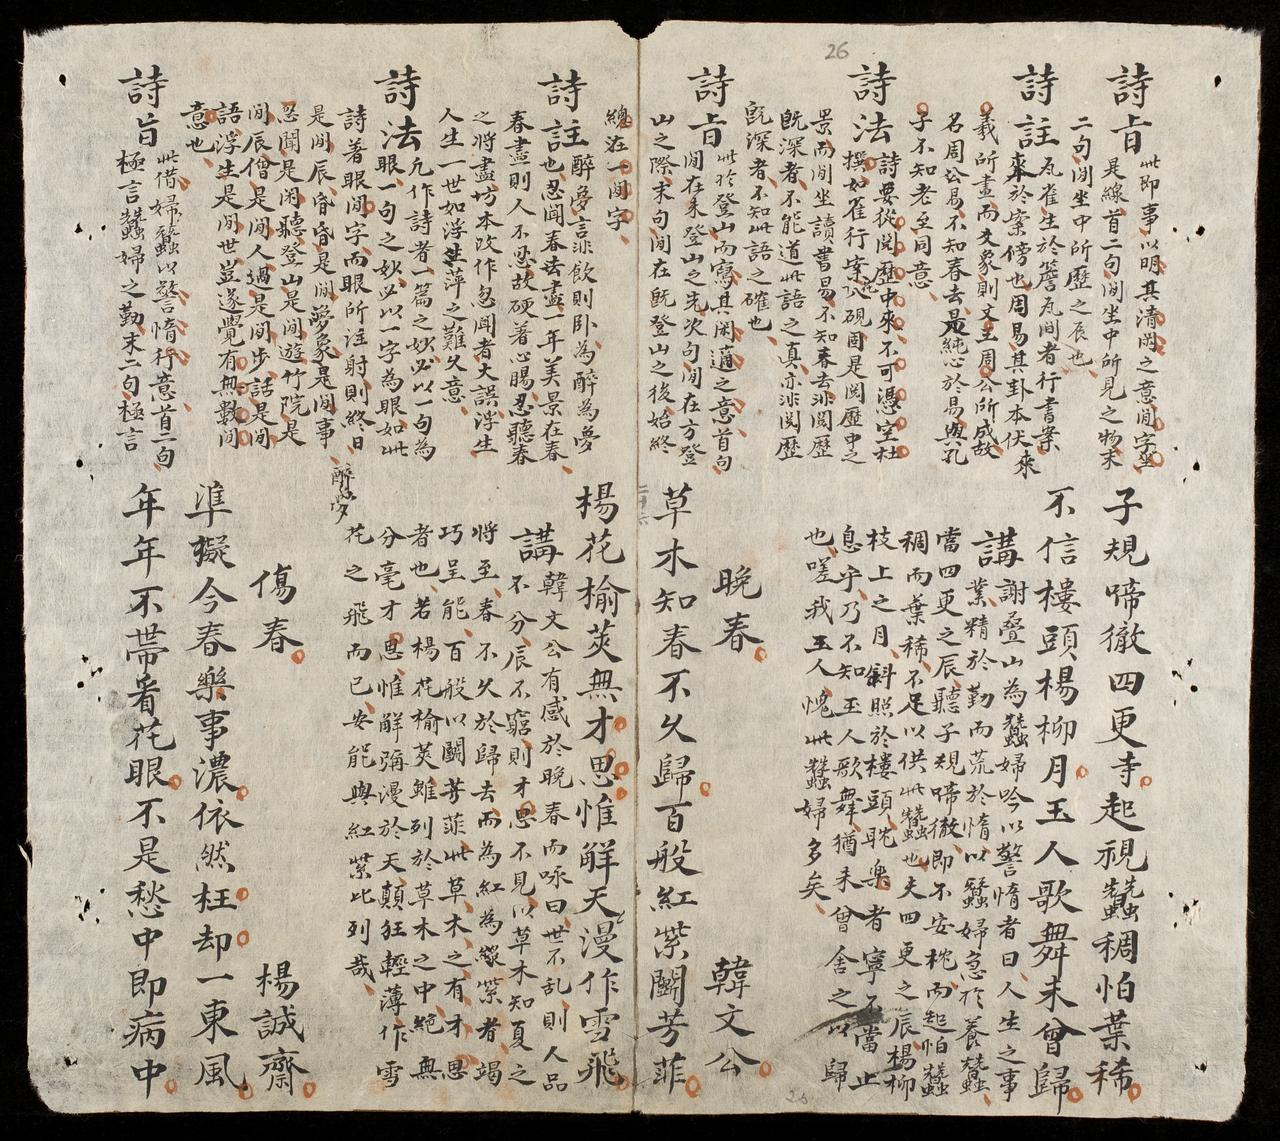 26
詩旨 此即事以明其清閑之意閒字坐
是線首二句閒坐中所見之物末
二句閒坐中所歷之辰也
詩註 瓦雀生於簷瓦間者行書案
來於案傍也周易其卦本伏來
羲所畫而爻象則文王周公所成故
名周公易不知春去是純心於易與孔
子不知老至同意
詩法 詩要從閱歷中來不可憑空杜
撰如雀行案硯固是閱歷中之
景而閒坐讀書易不知春去非閱歷
既深者不能道此語之真亦非閱歷
既深者不知此語之確也
詩旨 此於登山而寫其閑適之意首句
閒在未登山之先次句閒在方登
山之際末句閒在既登山之後始終
子規啼徹四更寺起視蠶稠怕葉稀
不信樓頭楊柳月玉人歌舞未曾歸
講 謝疊山為蠶婦吟以警惰者曰人生之事
業精於勤而荒於惰以蠶婦急於養蠶
當四更之辰聽子規啼徹即不安枕而起怕蠶
稠而葉稀不足以供此蠶也夫四更之辰楊柳
枝上之月斜照於樓頭耽樂者寧不當止
息乎乃不知玉人歌舞猶未曾舍之以歸
也嗟我玉人愧此蠶婦多矣
晚春 韓文公
草木知春不久歸百般紅紫鬬芳菲
總在一閒字
詩註 醉夢言非飲則卧為醉為夢
也忍聞春去盡一年美景在春
春盡則人不忍故硬著心腸忍聽春
之將盡坊本改作忽聞者大誤浮生
人生一世如浮生萍之難久意
詩法 凡作詩者一篇之妙必以一句為
眼一句之妙必以一字為眼如此
詩著眼閒字而眼所注射則終日
是閒辰昏昏是閒夢象是閒事
忍聞是閑聽登山是閒遊竹院是
閒辰僧是閒人過是閒步話是閒
語浮生是閒世豈遂覺有無數閒
意也
醉夢
詩旨 此借婦蠶以警惰行意首二句
極言蠶婦之勤末二句極言
楊花榆莢無才思惟解天漫作雪飛
講 韓文公有感於晚春而咏曰世不乱則人品
不分辰不窮則才思不見以草木知夏之
將至春不久於歸去而為紅為緑紫者竭
巧呈能百般以鬬芳菲此草木之有才思
者也若楊花榆莢雖列於草木之中絕無
分毫才思惟解彌漫於天顛狂輕薄作雪
花之飛而已安能與紅紫比列哉
傷春 楊誠齋
準擬今春樂事濃依然枉却一東風
年年不帶看花眼不是愁中即病中